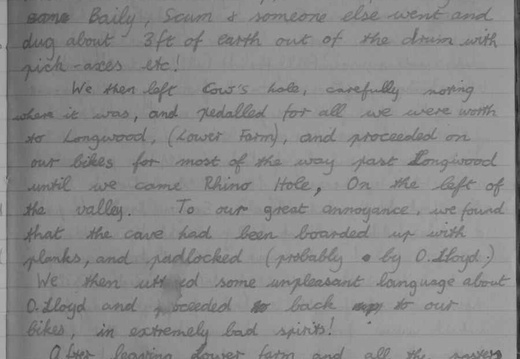 some Baily, Scum & someone else went and
dug about 3ft of earth out of the drum with
pick-axes etc!
We then left Cow's hole, carefully noting
where it was, and pedalled for all we were worth
to Longwood, (Lower Farm), and proceeded on
our bikes for most of the way past Longwood
until we came Rhino Hole, On the left of
the valley. To our great annoyance, we found
that the cave had been boarded up with
planks, and padlocked (probably by O.Lloyd.)
We then utt ed some unpleasant language about
O.Lloyd and p oceeded to back to our
bikes, in extremely bad spirits!
After leaving Lower farm and all the